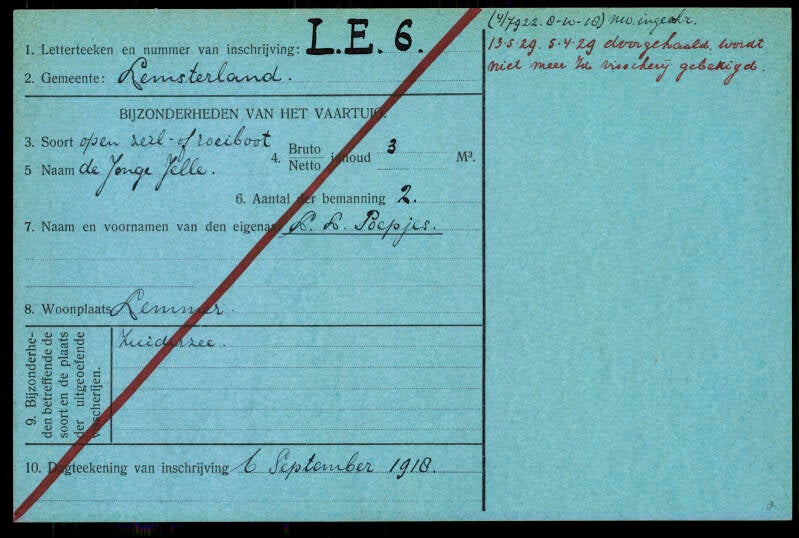 1. Letterteeken en nummer van inschrijving: L.E. 6.
2. Gemeente: Lemsterland.
BIJZONDERHEDEN VAN HET VAARTUIG.
3. Soort open zeil- of roeiboot
4. Bruto Netto inhoud 3 M³.
5 Naam de Jonge Jelle.
6. Aantal der bemanning 2.
7. Naam en voornamen van den eigenaar Poepjes.
8. Woonplaats Lemmer.
9. Bijzonderhe-
den betreffende de
soort en de plaats
der uitgeoefende
visscherijen.
Zuiderzee.
10. Dagteekening van inschrijving 6 September 1918.
(4/7922. 8-10-18) nw. ingeschr.
13.5-29. 5.4-29 doorgehaald, wordt
niet meer td visscherij gebezigd.